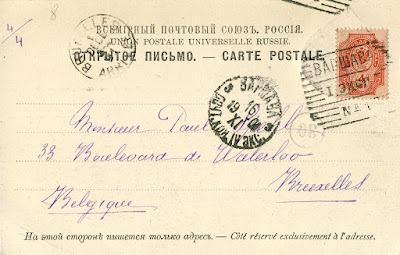 4/4
8
ВСЕМІРНЫЙ ПОЧТОВЫЙ СОЮЗЪ. РОССІЯ.
UNION POSTALE UNIVERSELLE RUSSIE.
ОТКРЫТОЕ ПИСЬМО. — CARTE POSTALE
ВАРШАВА
I ЭКСП.
Monsieur Paul
33 Boulevard de Waterloo
Bruxelles
Belgique
На этой сторонѣ пишется только адресъ. — Côté réservé exclusivement à l'adresse.